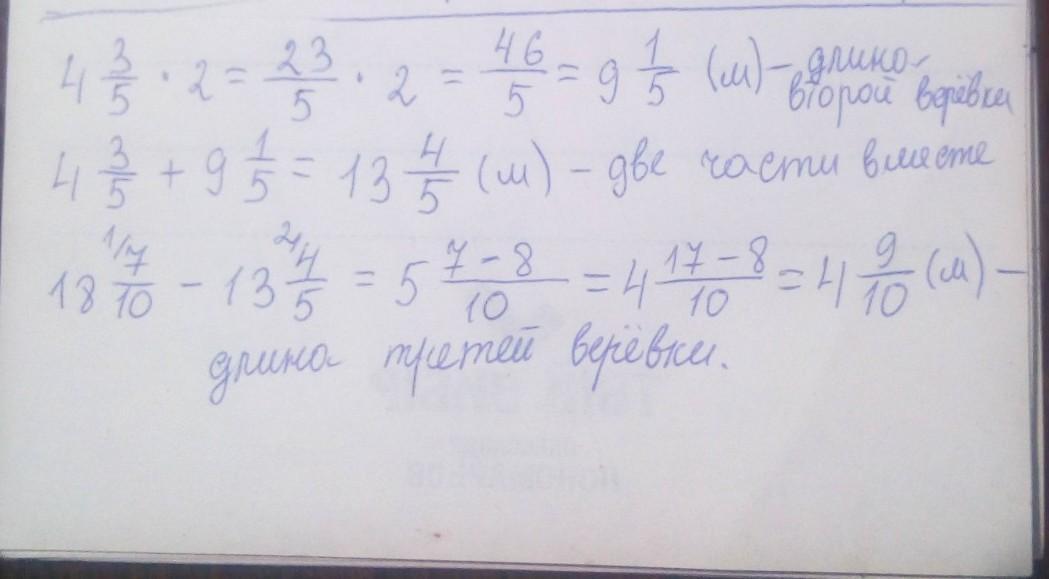 4 3/5 · 2 = 23/5 · 2 = 46/5 = 9 1/5 (м) – длина
второй верёвки
4 3/5 + 9 1/5 = 13 4/5 (м) – две части вместе
18 1/7/10 – 13 2/4/5 = 5 7–8/10 = 4 17–8/10 = 4 9/10 (м) –
длина третей верёвки.